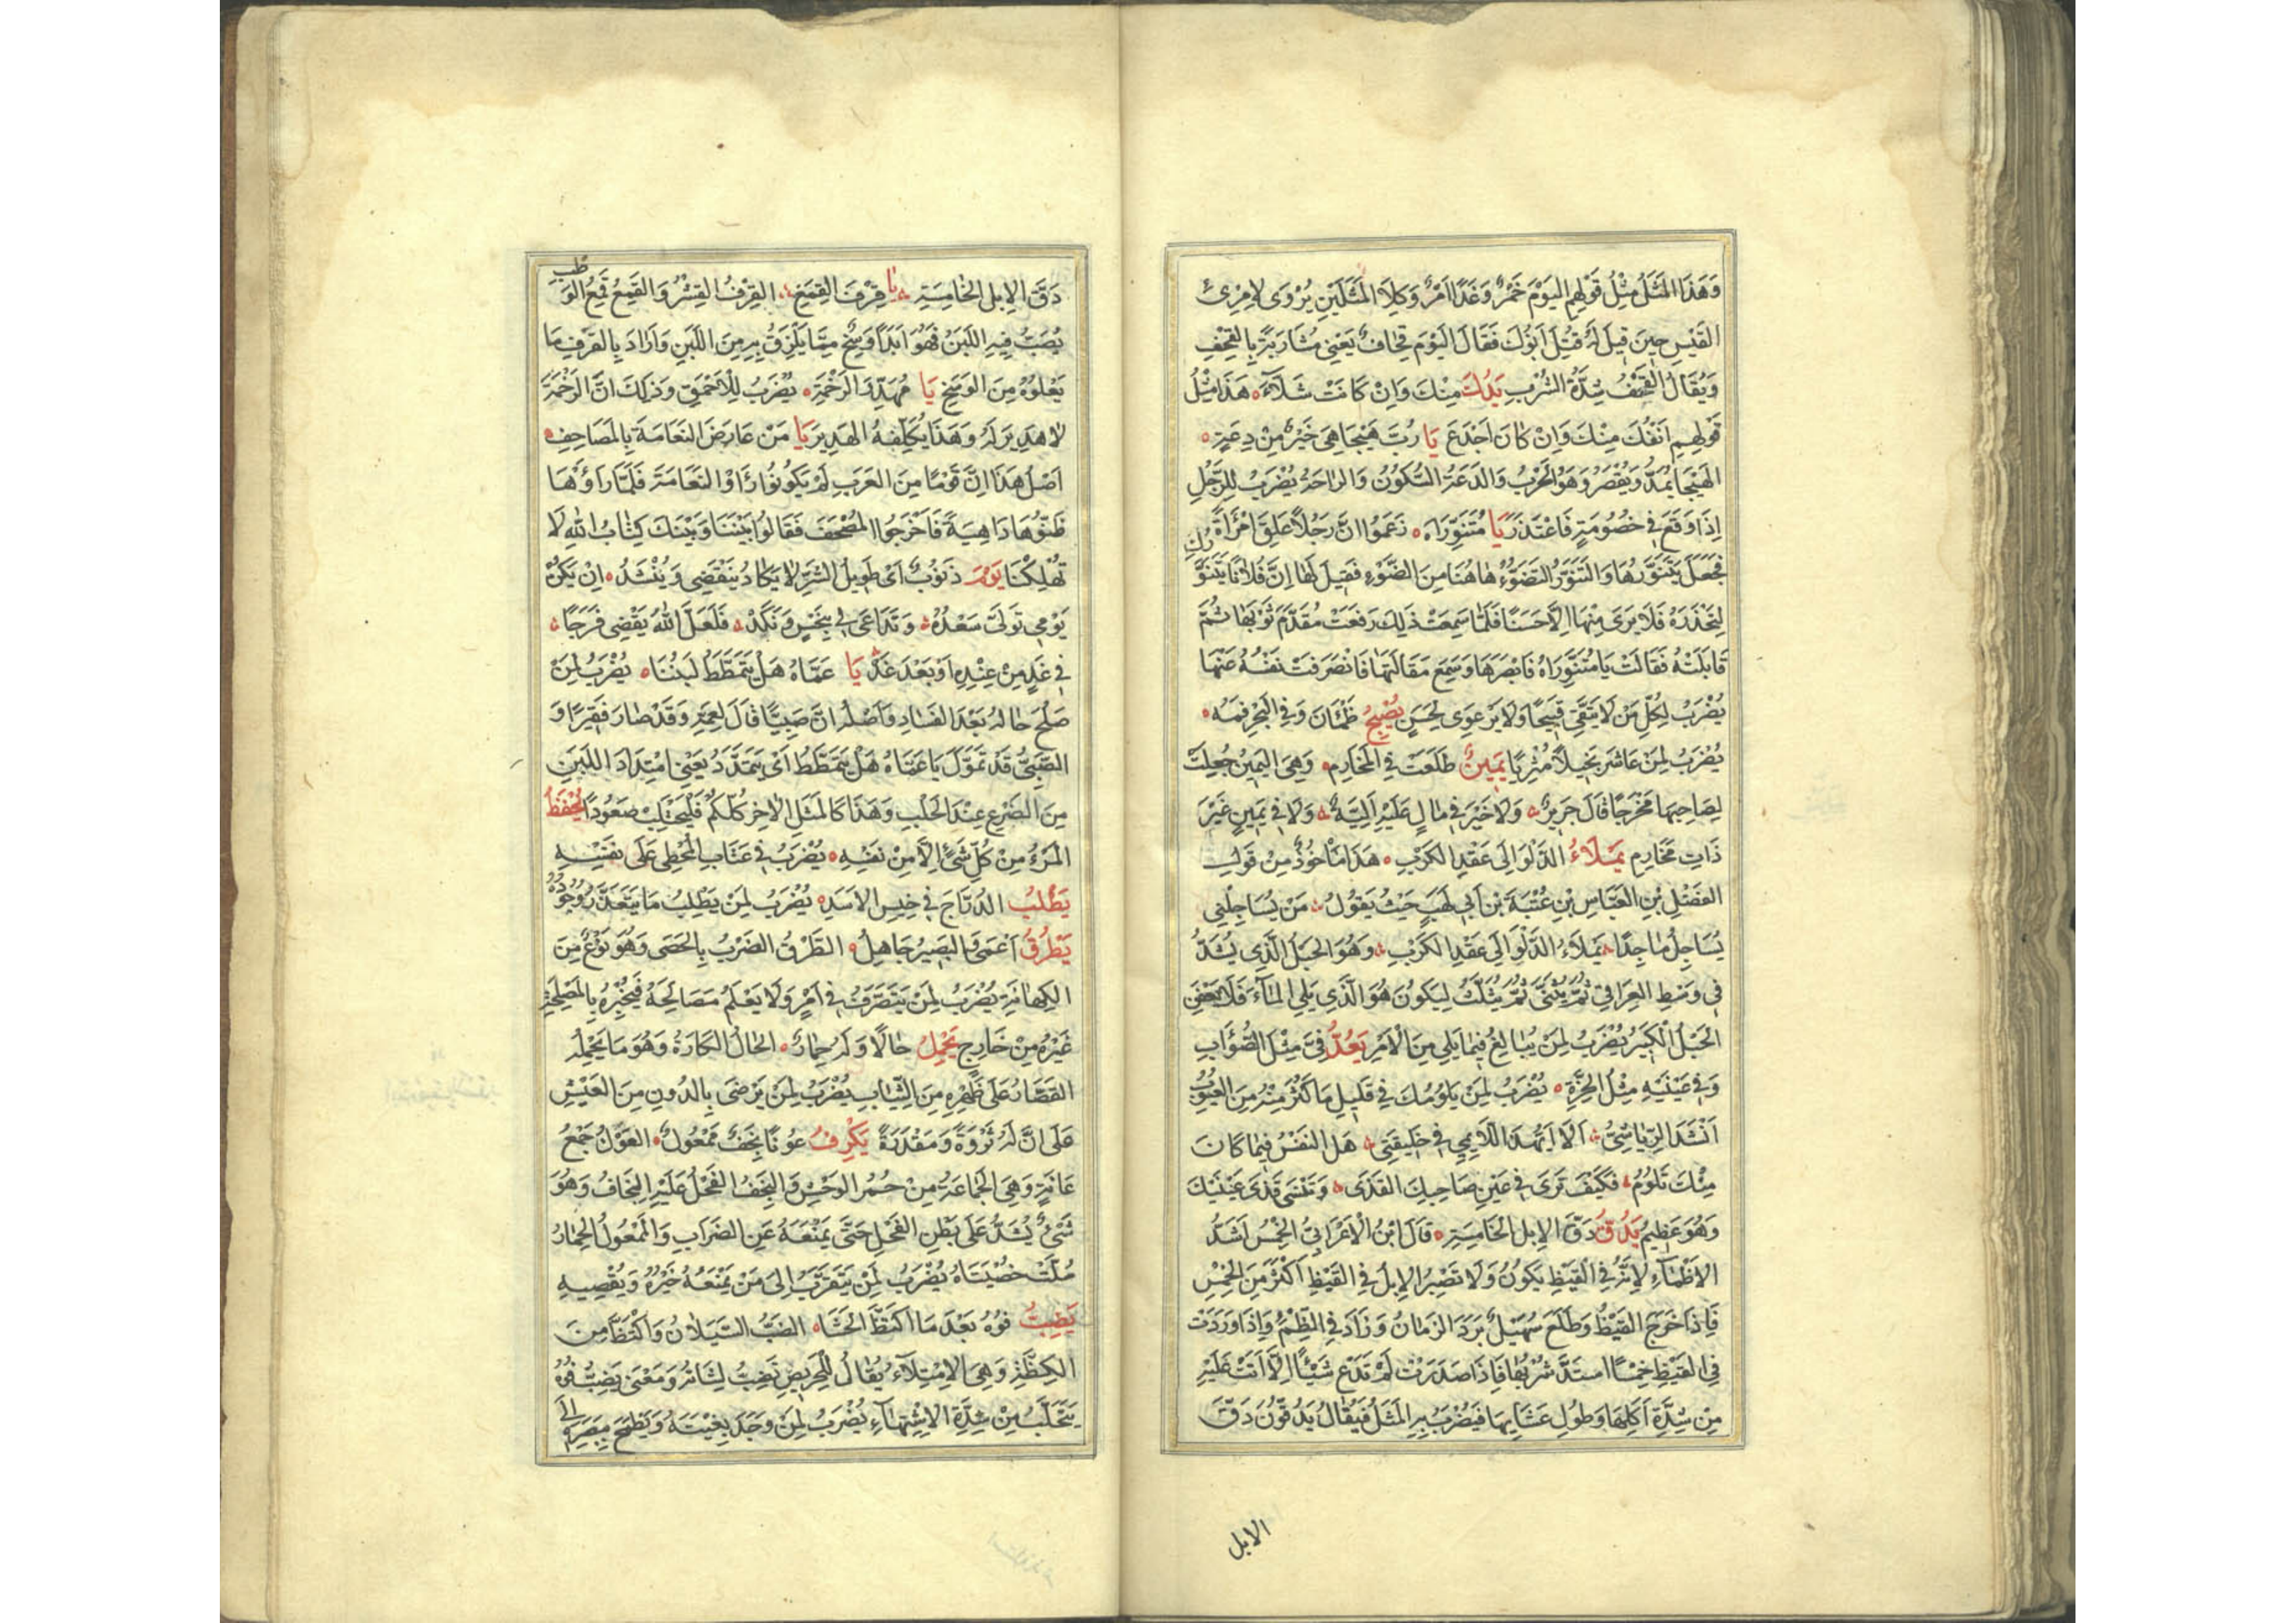 وَهَذَا المَثَلُ مِثْلُ قَوْلِهِم اليَوْمَ خَمْرٌ وَغَدًا اَمْرٌ وَكِلاَ المَثَلَيْنِ يُرْوَى لاِمْرِئ
القَيْسِ حِينَ قِيلَ لَهُ قُتِلَ اَبُوكَ فَقَالَ اليَوْمَ قِحَافٌ يَعْنِي مُشَارَبَةً بِالقِحْفِ
وَيُقَالُ القَحْفُ شِدَّةُ الشُرْبِ يَدُكَ مِنْكَ وَاِنْ كَانَتْ شَلَّاءَ هَذَا مِثْلُ
قَوْلِهِم اَنْفُكَ مِنْكَ وَاِنْ كَانَ اَجْدَعَ يَا رُبَّ هَيْجَا هِيَ خَيْرٌ مِنْ دِعَةٍ
الهَيْجَا يُمَدُّ وَيُقْصَرُ وَهُوَ الحَرْبُ وَالدَعَةُ السُّكُونُ وَالرَاحَةُ يُضْرَبُ لِلرَّجُلِ
اِذَا وَقَعَ فِي خُصُومَةٍ فَاعْتَذَرَ يَا مُتَنَوِّرَاهُ زَعَمُوا انَّ رَجُلاً عَلِقَ امْرَأَةً
فَجَعَلَ يَتَنَوَّرُهَا وَالتَنَوُّرُ التَضَوُّءُ هَاهُنَا مِنَ الضَّوْءِ فَقِيلَ لَهَا اِنَّ فُلَانًا يَتَنَوَّرُكِ
لِتَحْذَرَهُ فَلَا يَرَى مِنْهَا اِلَّا حَسَنًا فَلَمَّا سَمِعَتْ ذَلِكَ رَفَعَتْ مُقَدَّمَ ثَوْبِهَا ثُمَّ
قَابَلَتْهُ فَقَالَتْ يَا مُتَنَوِّرَاهُ فَابْصَرَهَا وَسَمِعَ مَقَالَتَهَا فَانْصَرَفَتْ نَفْسُهُ عَنْهَا
يُضْرَبُ لِكُلِّ مَنْ لَا يَتَّقِي قَبِيحًا وَلَا يَرْعَوِي لِحَسَنٍ يُصْبِحُ ظَمْانَ وَفِي البَحْرِ فَمُهُ
يُضْرَبُ لِمَنْ عَاشَرَ بَخِيلًا مُثْرِيًا يَمِينٌ طَلَعَتْ فِي المَخَارِمِ وَهِيَ اليَمِينُ جُعِلَتْ
لِصَاحِبِهَا مَخْرَجًا قَالَ جَرِيرٌ وَلَا خَيْرَ فِي مَالٍ عَلَيْهِ اَلِيَّةٌ وَلَا فِي يَمِينٍ غَيْرَ
ذَاتِ مَخَارِمِ يَمْلَاءُ الدَّلْوَ اِلَى عَقْدِ الكَرَبِ هَذَا مَاْخُوذٌ مِنْ قَوْلِ
الفَضْلِ بْنِ العَبَّاسِ بْنِ عُتْبَةَ بْنِ اَبِي لَهَبٍ حَيْثُ يَقُولُ مَنْ يُسَاجِلْنِي
يُسَاجِلُ مَاجِدًا يَمْلَاءُ الدَّلْوَ اِلَى عَقْدِ الكَرَبْ وَهُوَ الحَبْلُ الَّذِي يُشَدُّ
فِي وَسَطِ العِرَاقِي ثُمَّ يُثَنَّى ثُمَّ يُثَلَّثُ لِيَكُونَ هُوَ الَّذِي يَلِي المَاءَ فَلَا يَعْفَنَ
الحَبْلُ الكَبِيرُ يُضْرَبُ لِمَنْ يُبَالِغُ فِيمَا يَلِي مِنَ الْاَمْرِ يَعُدُّ فِيَّ مِثْلَ الصُّؤَابِ
وَفِي عَيْنَيْهِ مِثْلُ الجَرَّةِ يُضْرَبُ لِمَنْ يَلُومُكَ فِي قَلِيلِ مَا كَثُرَ مِنْهُ مِنَ العُيُوبِ
اَنْشَدَ الرِّيَاشِيُّ اَلَا اَيُّهَذَا اللَّائِمِي فِي خَلِيقَتِي هَلِ النَفْسُ فِيمَا كَانَ
مِنْكَ تَلُومُ فَكَيْفَ تَرَى فِي عَيْنِ صَاحِبِكَ القَذَى وَتَنْسَى قَذَى عَيْنَيْكَ
وَهُوَ عَظِيمُ يَدُقُّ دَقَّ الاِبِلِ الخَامِسَةِ قَالَ ابْنُ الْاَعْرَابِيِّ الخِمْسُ اَشَدُّ
الاَظْمَاءِ لِاَنَّهُ فِي القَيْظِ يَكُونُ وَلَا تَصْبِرُ الاِبِلُ فِي القَيْظِ اَكْثَرَ مِنَ الخِمْسِ
فَاِذَا خَرَجَ القَيْظُ وَطَلَعَ سُهَيْلٌ بَرَدَ الزَمَانُ وَزَادَ فِي الظِّمْءِ وَاِذَا وَرَدَتْ
فِي القَيْظِ خِمْسًا اشتَدَّ شُرْبُهَا فَاِذَا صَدَرَتْ لَمْ تَدَعْ شَيْئًا اِلَّا اَتَتْ عَلَيْهِ
مِنْ شِدَّةِ اَكْلِهَا وَطُولِ عَشَائِهَا فَيُضْرَبُ بِهِ المَثَلُ فَيُقَالُ يَدُقُّونَ دَقَّ
الابل
دَقَّ الاِبِلِ الخَامِسَةِ يَا قِرْفَ القِمَعِ القِرْفُ القِشْرُ وَالقِمَعُ قِمَعُ الوَطْبِ
يُصَبُّ فِيهِ اللَبَنُ فَهُوَ اَبَدًا وَسِخٌ مِمَّا يَلْزَقُ بِهِ مِنَ اللَبَنِ وَاَرَادَ بِالقِرْفِ مَا
يَعْلُوهُ مِنَ الوَسَخِ يَا مُهَدِّرَ الرَخْمَةِ يُضْرَبُ لِلْاَحْمَقِ وَذَلِكَ انَّ الرَخْمَةَ
لَا هَدِيرَ لَهَ وَهَذَا يُكَلِّفُهَ الهَدِيرَ يَا مَنْ عَارَضَ النَعَامَةَ بِالمَصَاحِفِ
اَصْلُ هَذَا اِنَّ قَوْمًا مِنَ العَرَبِ لَمْ يَكُونُوا رَاَوْا النَعَامَةَ فَلَمَّا رَاَوْهَا
ظَنُّوهَا دَاهِيَةً فَاَخْرَجُوا المُصْحَفَ فَقَالُوا بَيْنَنَا وَبَيْنَكَ كِتَابُ اللهِ لَا
تُهْلِكْنَا يَوْمٌ ذَنُوبٌ اَيْ طَوِيلُ الشَرِّ لَا يَكَادُ يَنْقَضِي وَيُنْشَدُ اِنْ يَكُنْ
يَوْمِي تَوَلَّى سَعْدُهُ وَتَدَاعَى لِي بِنَحْسٍ وَنَكَدْ فَلَعَلَّ اللهَ يَقْضِي فَرَجًا
فِي غَدٍ مِنْ عِنْدِهِ اَوْ بَعْدَ غَدْ يَا عَمَّاهُ هَلْ يَتَمَطَّطُ لَبَنُنَا يُضْرَبُ لِمَنْ
صَلُحَ حَالُهُ بَعْدَ الفَسَادِ وَاَصْلُهُ انَّ صَبِيًّا قَالَ لِعَمِّهِ وَقَدْ صَارَ فَقِيرًا وَ
الصَّبِيُّ قَدْ تَمَوَّلَ يَا عَمَّاهُ هَلْ يَتَمَطَّطُ اَيْ يَتَمَدَّدُ يَعْنِي امْتِدَادَ اللَبَنِ
مِنَ الضَرْعِ عِنْدَ الحَلْبِ وَهَذَا كَالمَثَلِ الاخِرِ كُلُّكُمْ فَلْيَحْتَلِبْ صَعُودًا يُحْفَظُ
المَرْءُ مِنْ كُلِّ شَئٍ اِلَّا مِنْ نَفْسِهِ يُضْرَبُ فِي عِتَابِ المُخْطِي عَلَى نَفْسِهِ
يَطْلُبُ الدُرَّاجَ فِي خِيسِ الاَسَدِ يُضْرَبُ لِمَنْ يَطْلِبُ مَا يَتَعَذَّرُ وُجُودُهُ
يَطْرُقُ اَعْمَى وَالبَصِيرُ جَاهِلٌ الطَرْقُ الضَرْبُ بِالحَصَى وَهُوَ نَوْعٌ مِنَ
الكِهَانَةِ يُضْرَبُ لِمَنْ يَتَصَرَّفُ فِي اَمْرٍ وَلَا يَعْلَمُ مَصَالِحَهُ فَيُخْبِرُهُ بِالمَصْلَحَةِ
غَيْرُهُ مِنْ خَارِجٍ يَحْمِلُ حَالًا وَلَهُ حِمَارٌ الحَالُ الكَارَةُ وَهُوَ مَا يَحْمِلُهُ
القَصَّارُ عَلَى ظَهْرِهِ مِنَ الثِّيَابِ يُضْرَبُ لِمَنْ يَرْضَى بِالدُونِ مِنَ العَيْشِ
عَلَى انَّ لَهُ ثَرْوَةً وَمَقْدَرَةً يَكْرِفُ عُونًا نَجَفٌ مَمْعُولٌ العُوْنُ جَمْعُ
عَانَةٍ وَهِيَ الجَمَاعَةُ مِنْ حُمُرِ الوَحْشِ وَالنَجَفُ الفَحْلُ عَلَيْهِ النِجَافُ وَهُوَ
شَئٌ يُشَدُّ عَلَى بَطْنِ الفَحْلِ حَتَّى يَمْنَعَهُ عَنِ الضَرَابِ وَالمَمْعُولُ الحِمَارُ
سُلَّتْ خُصْيَتَاهُ يُضْرَبُ لِمَنْ يَتَقَرَّبُ اِلَى مَنْ يَمْنَعُهُ خَيْرَهُ وَيُقْصِيهِ
يَضِبُّ فُوهُ بَعْدَ مَا اكْتَظَّ الحَشَا الضَبُّ السَيَلَانُ وَاكْتَظَّ مِنَ
الكِظَّةِ وَهِيَ الاِمْتِلَاءُ يُقَالُ لِلحَرِيصِ تَضِبُّ لِثَاتُهُ وَمَعْنَى يَضِبُّ فُوهُ
يَتَحَلَّبُ مِنْ شِدَّةِ الاِشْتِهَاءِ يُضْرَبُ لِمَنْ وَجَدَ بِغْيَتَهُ وَيَطْمَحُ بِبَصَرِهِ اِلَى